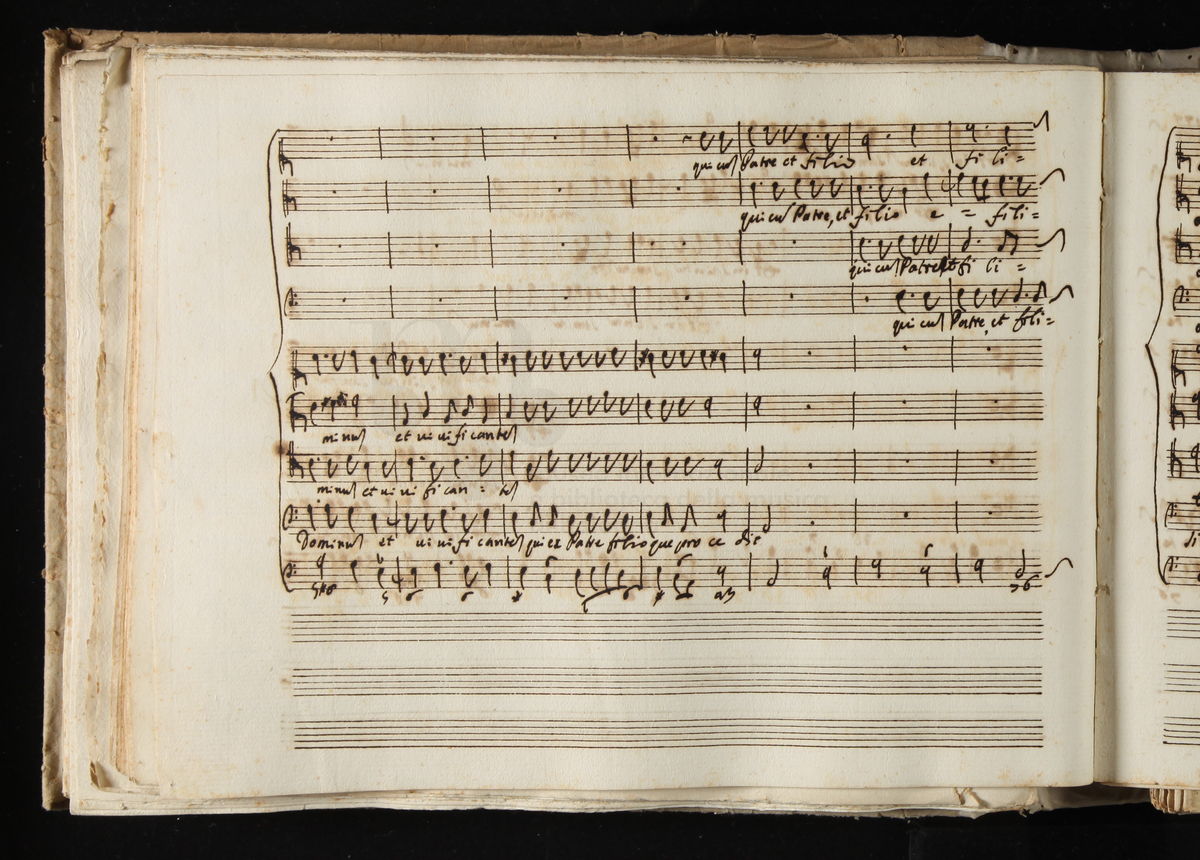 qui cum Patre et filio et fili=
qui cum Patre, et filio e = fili=
qui cum Patre et fi li =
qui cum Patre, et fili=
minum et vivificantem
minum et vivifican = tem
Dominum et vivificantem qui ex Patre filioque procedit
biblioteca della musica